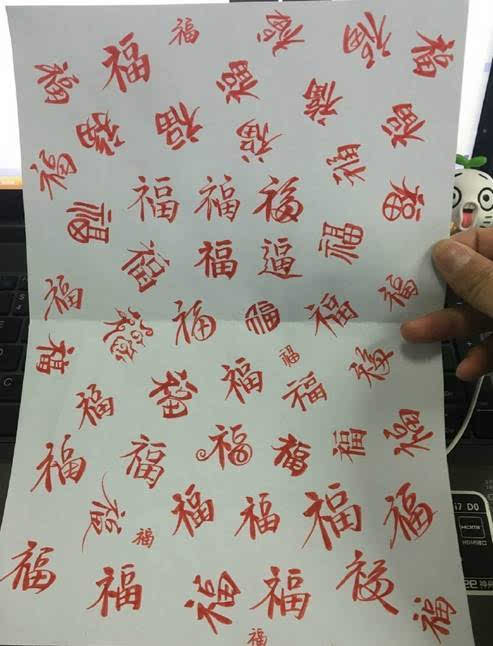 福 福 福 福
福 福 福 福
福 福 福 福
福 福
福 福 福 福
福 福
福 福 逼
福 福
福 福 福 福
福 福 福 福
福 福 福
福 福 福 福 福 福
福 福 福 福 福 福
福 福 福 福 福 福
福
HDMI